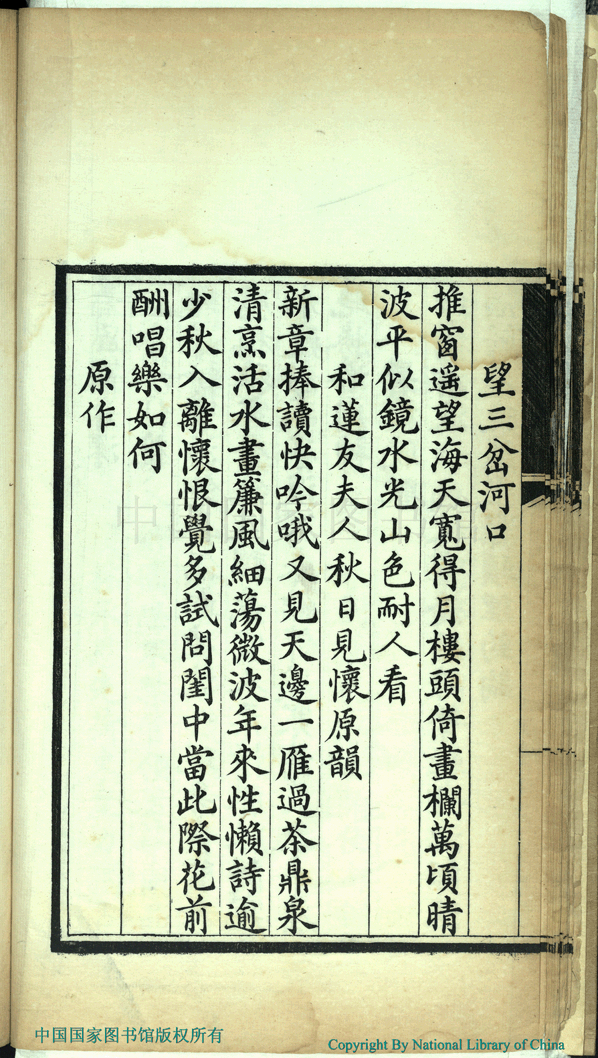 望三岔河口
推窗遥望海天寬得月樓頭倚畫欄萬頃晴
波平似鏡水光山色耐人看
和蓮友夫人秋日見懷原韻
新章捧讀快吟哦又見天邊一雁過茶鼎泉
清烹活水畫簾風細蕩微波年來性懶詩逾
少秋入離懷恨覺多試問閨中當此際花前
酬唱樂如何
原作
中国国家图书馆版权所有
Copyright By National Library of China